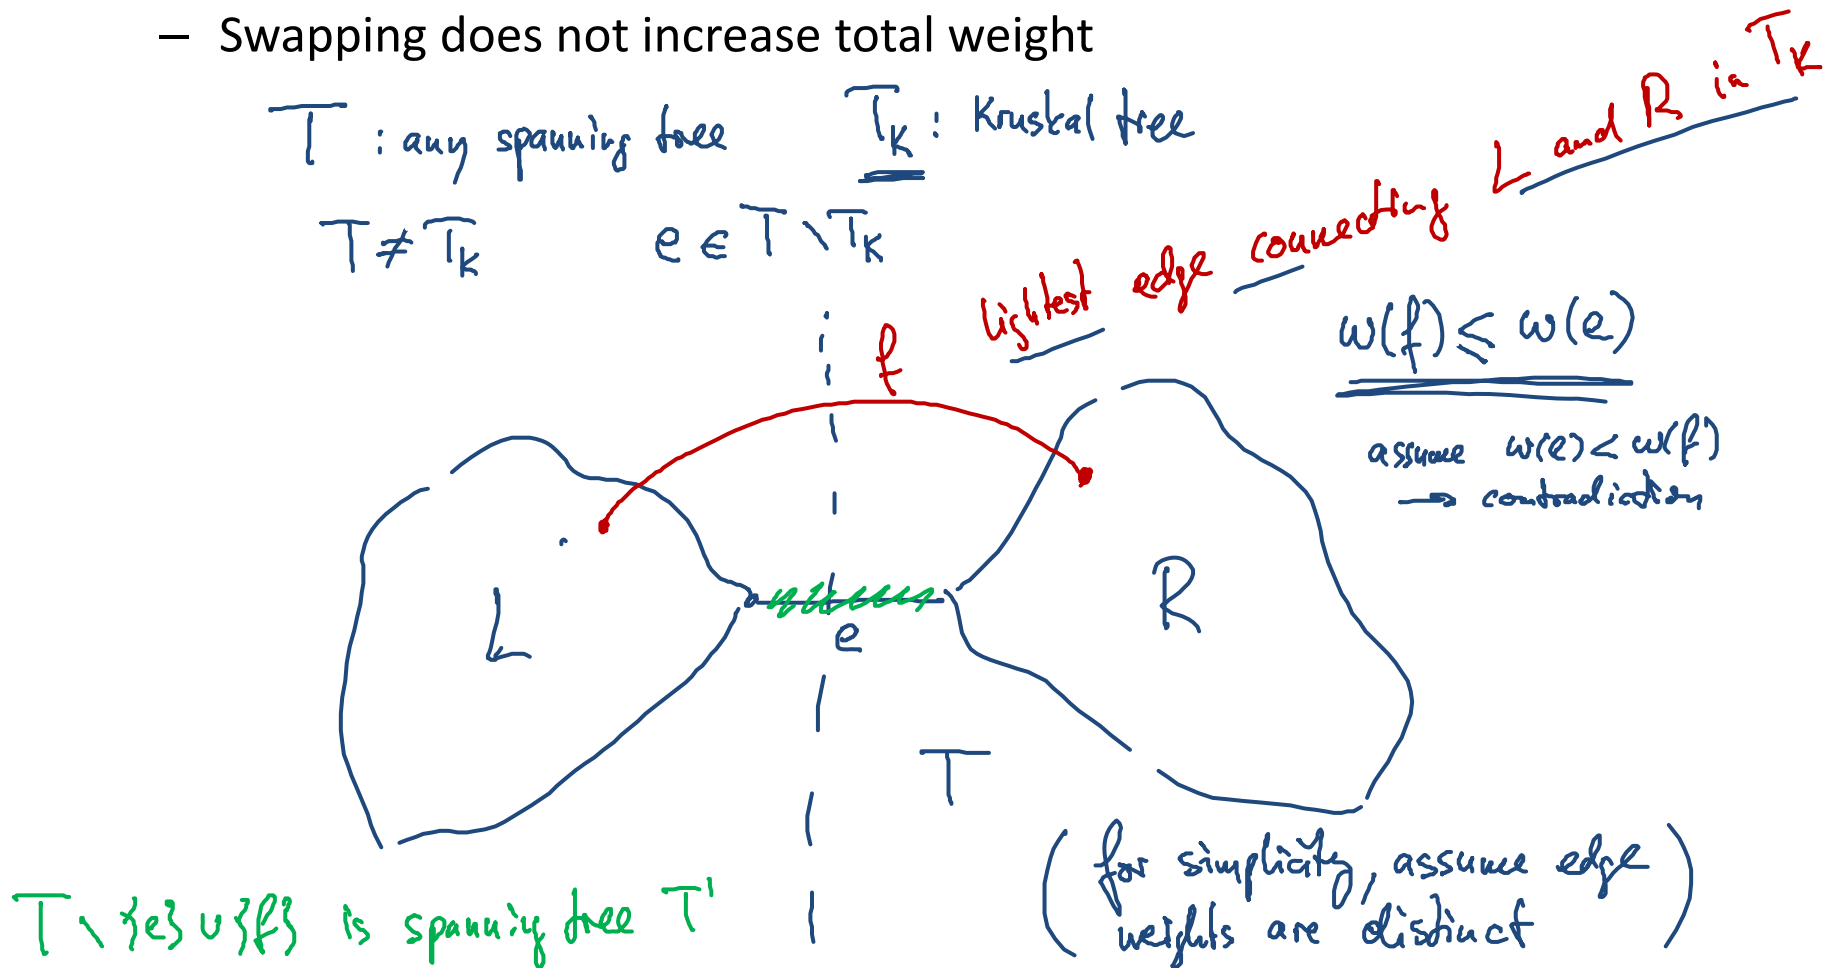 – Swapping does not increase total weight
T : any spanning tree
T_K : Kruskal tree
T ≠ T_K
e ∈ T \ T_K
lightest edge connecting L and R in T_K
f
w(f) ≤ w(e)
assume w(e) < w(f)
→ contradiction
L
e
R
T
(for simplicity, assume edge
weights are distinct)
T \ {e} ∪ {f} is spannig tree T'